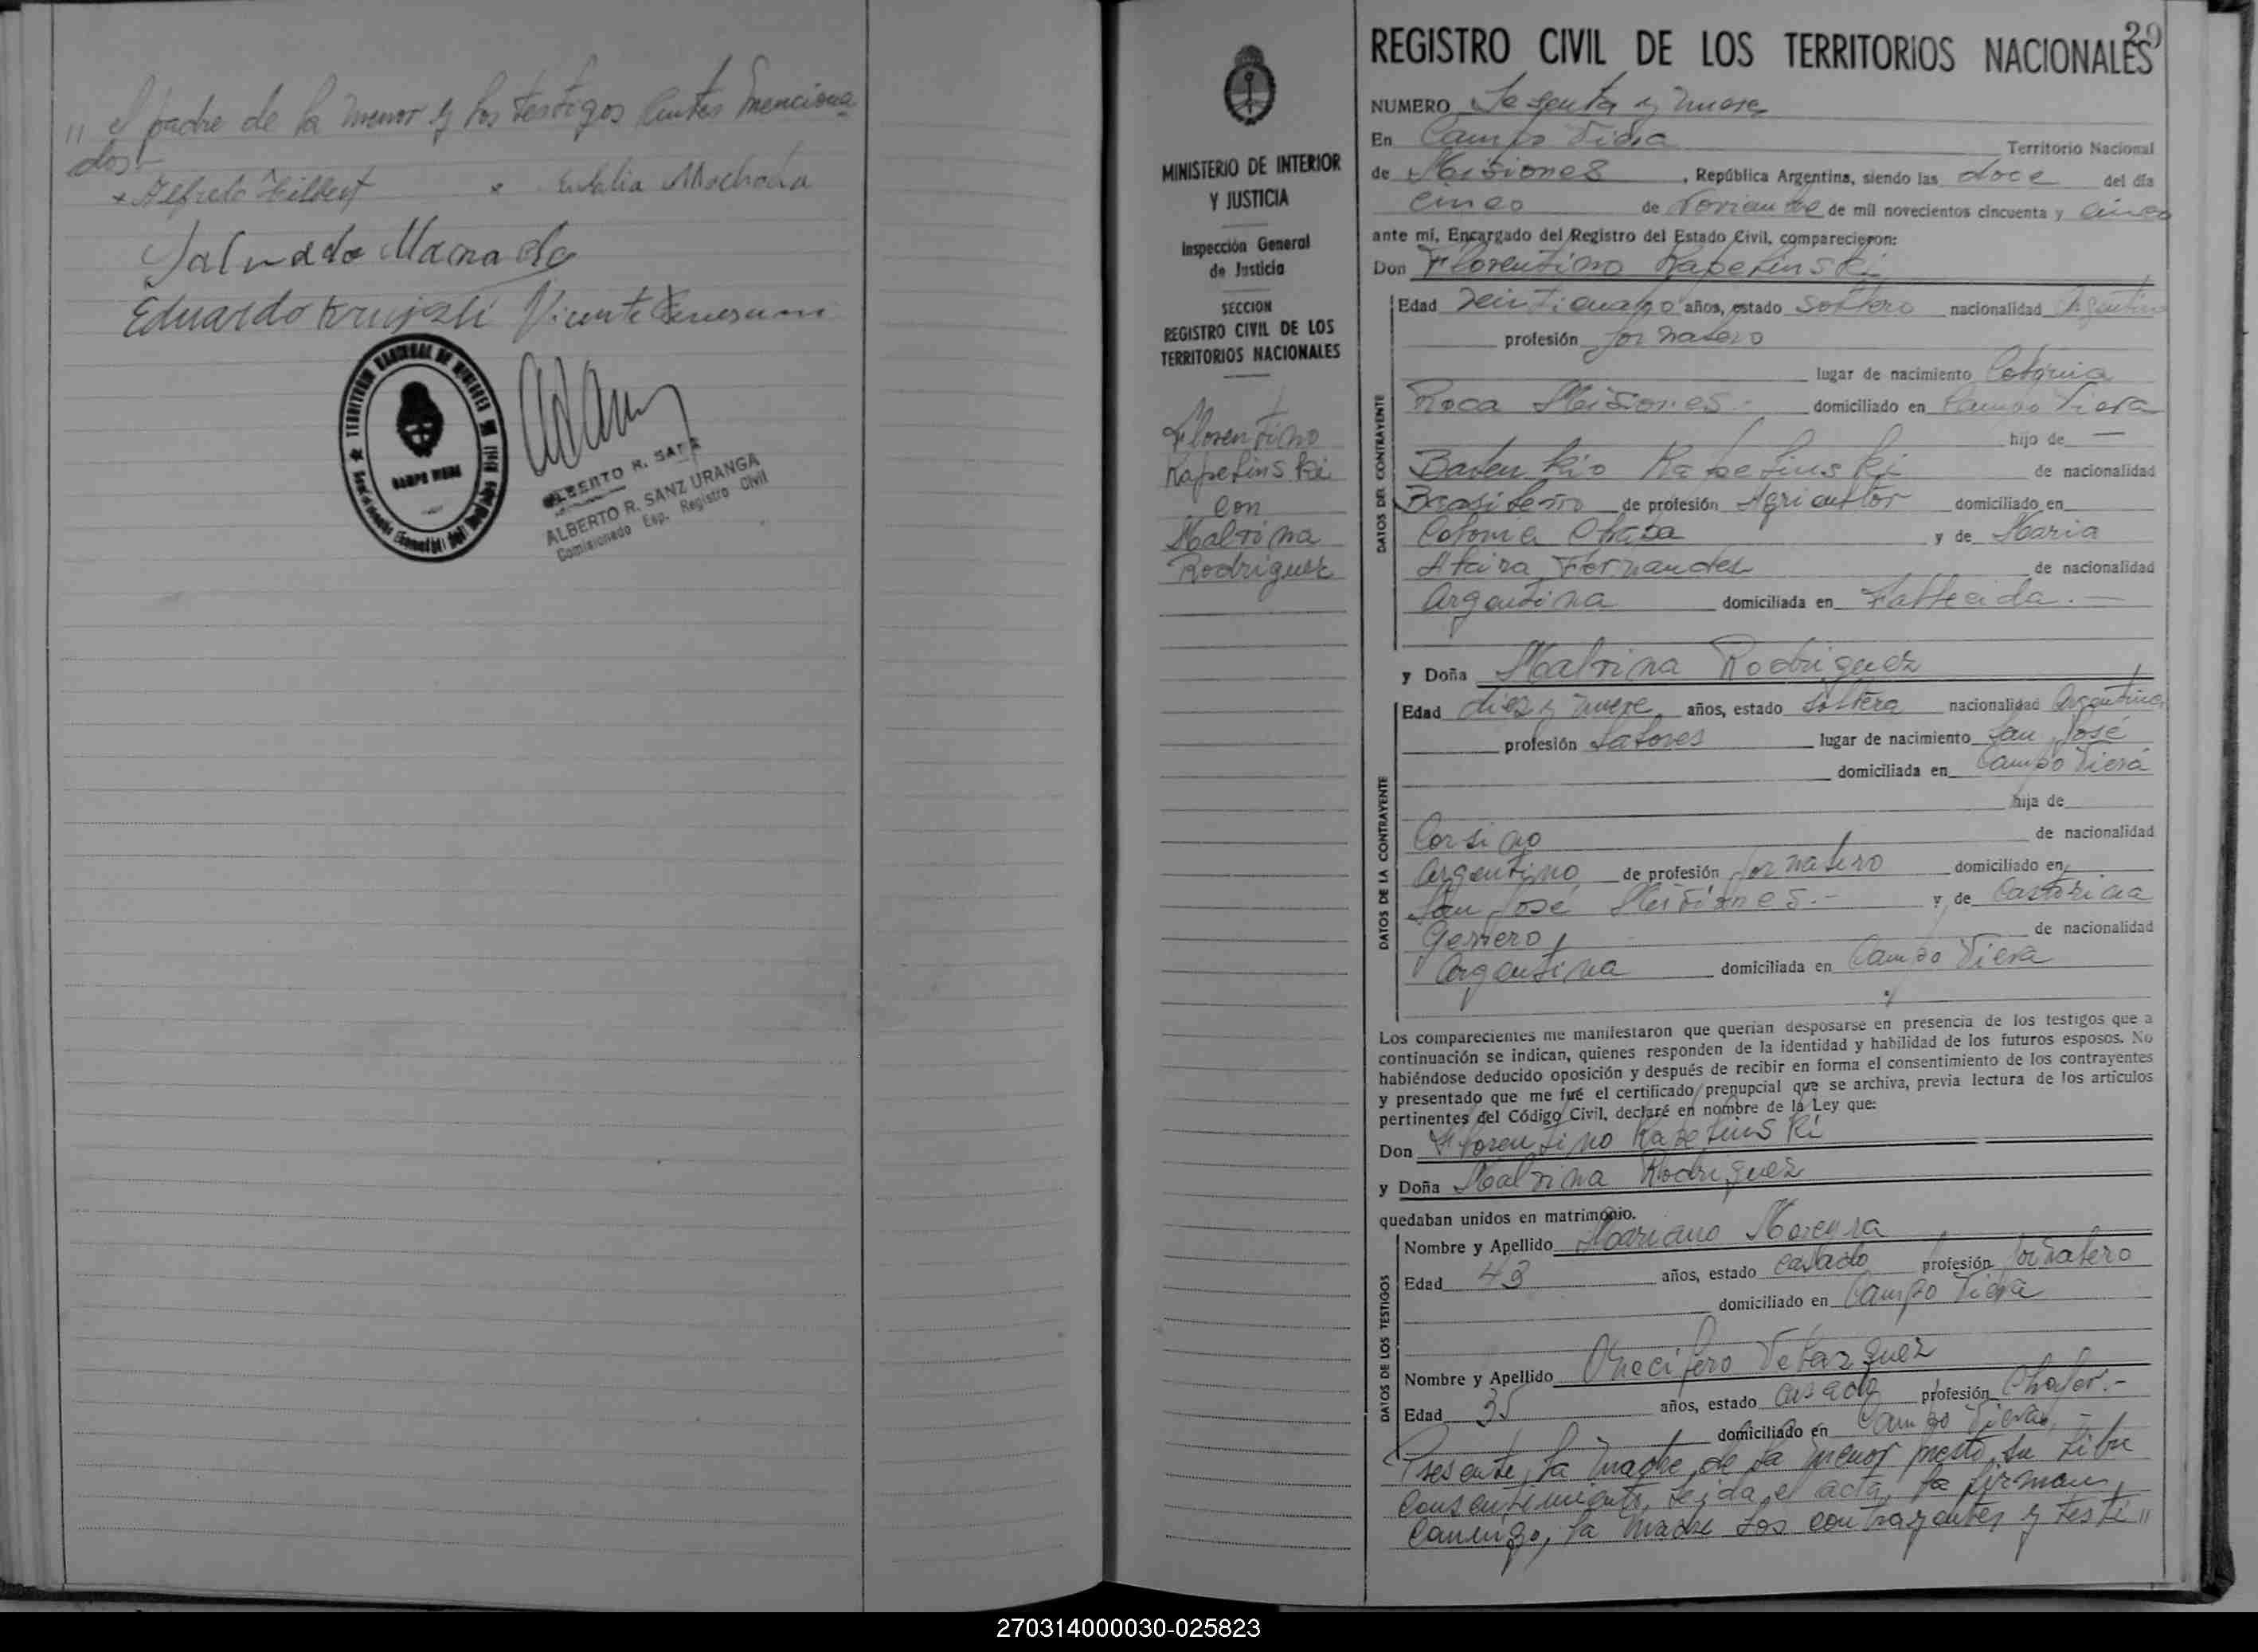 " el padre de la menor y los testigos antes menciona-
dos.-
Alfredo Hilbert Eulalia Machada
Salvado Macha do
Eduardo Vicente
CAMPO VIERA
ALBERTO R. SANZ
ALBERTO R. SANZ URANGA
Comisionado Esp. Registro Civil
MINISTERIO DE INTERIOR
Y JUSTICIA
Inspección General
de Justicia
SECCION
REGISTRO CIVIL DE LOS
TERRITORIOS NACIONALES
Florentino
Kapelinski
con
Malvina
Rodriguez
29
REGISTRO CIVIL DE LOS TERRITORIOS NACIONALES
NUMERO Sesenta y nueve
En Campo Viera Territorio Nacional
de Misiones , República Argentina, siendo las doce del día
cinco de Noviembre de mil novecientos cincuenta y cinco
ante mí, Encargado del Registro del Estado Civil, comparecieron:
Don Florentino Kapelinski
DATOS DEL CONTRAYENTE
Edad veinticuatro años, estado soltero nacionalidad Argentino
profesión jornalero
lugar de nacimiento Colonia
Roca Misiones.- domiciliado en Campo Viera
hijo de —
Kapelinski de nacionalidad
Brasileño de profesión Agricultor domiciliado en
Colonia y de Maria
Fernandez de nacionalidad
Argentina domiciliada en Fallecida.—
y Doña Malvina Rodriguez
DATOS DE LA CONTRAYENTE
Edad diez y nueve años, estado soltera nacionalidad Argentina
profesión Labores lugar de nacimiento San José
domiciliada en Campo Viera
hija de
Corsino de nacionalidad
Argentino de profesión jornalero domiciliado en
San José Misiones.- y de
de nacionalidad
Argentina domiciliada en Campo Viera
Los comparecientes me manifestaron que querían desposarse en presencia de los testigos que a
continuación se indican, quienes responden de la identidad y habilidad de los futuros esposos. No
habiéndose deducido oposición y después de recibir en forma el consentimiento de los contrayentes
y presentado que me fué el certificado prenupcial que se archiva, previa lectura de los artículos
pertinentes del Código Civil, declaré en nombre de la Ley que:
Don Florentino Kapelinski
y Doña Malvina Rodriguez
quedaban unidos en matrimonio.
DATOS DE LOS TESTIGOS
Nombre y Apellido Mariano
Edad 43 años, estado casado profesión jornalero
domiciliado en Campo Viera
Nombre y Apellido Velazquez
Edad 35 años, estado casado profesión Chofer.-
domiciliado en Campo Viera.-
Presente la madre de la menor prestó su libre
consentimiento, leida el acta, la firman
conmigo, la madre los contrayentes y testi"
270314000030-025823